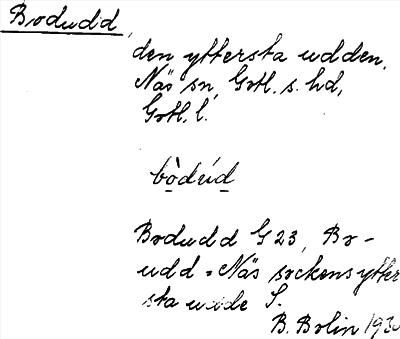 Bodudd,
den yttersta udden,
Näs sn, Gotl. s. hd,
Gotl. l.
bòdúd
Bodudd G 23, Bo-
udd = Näs sockens ytter
sta udde S.
B. Bolin